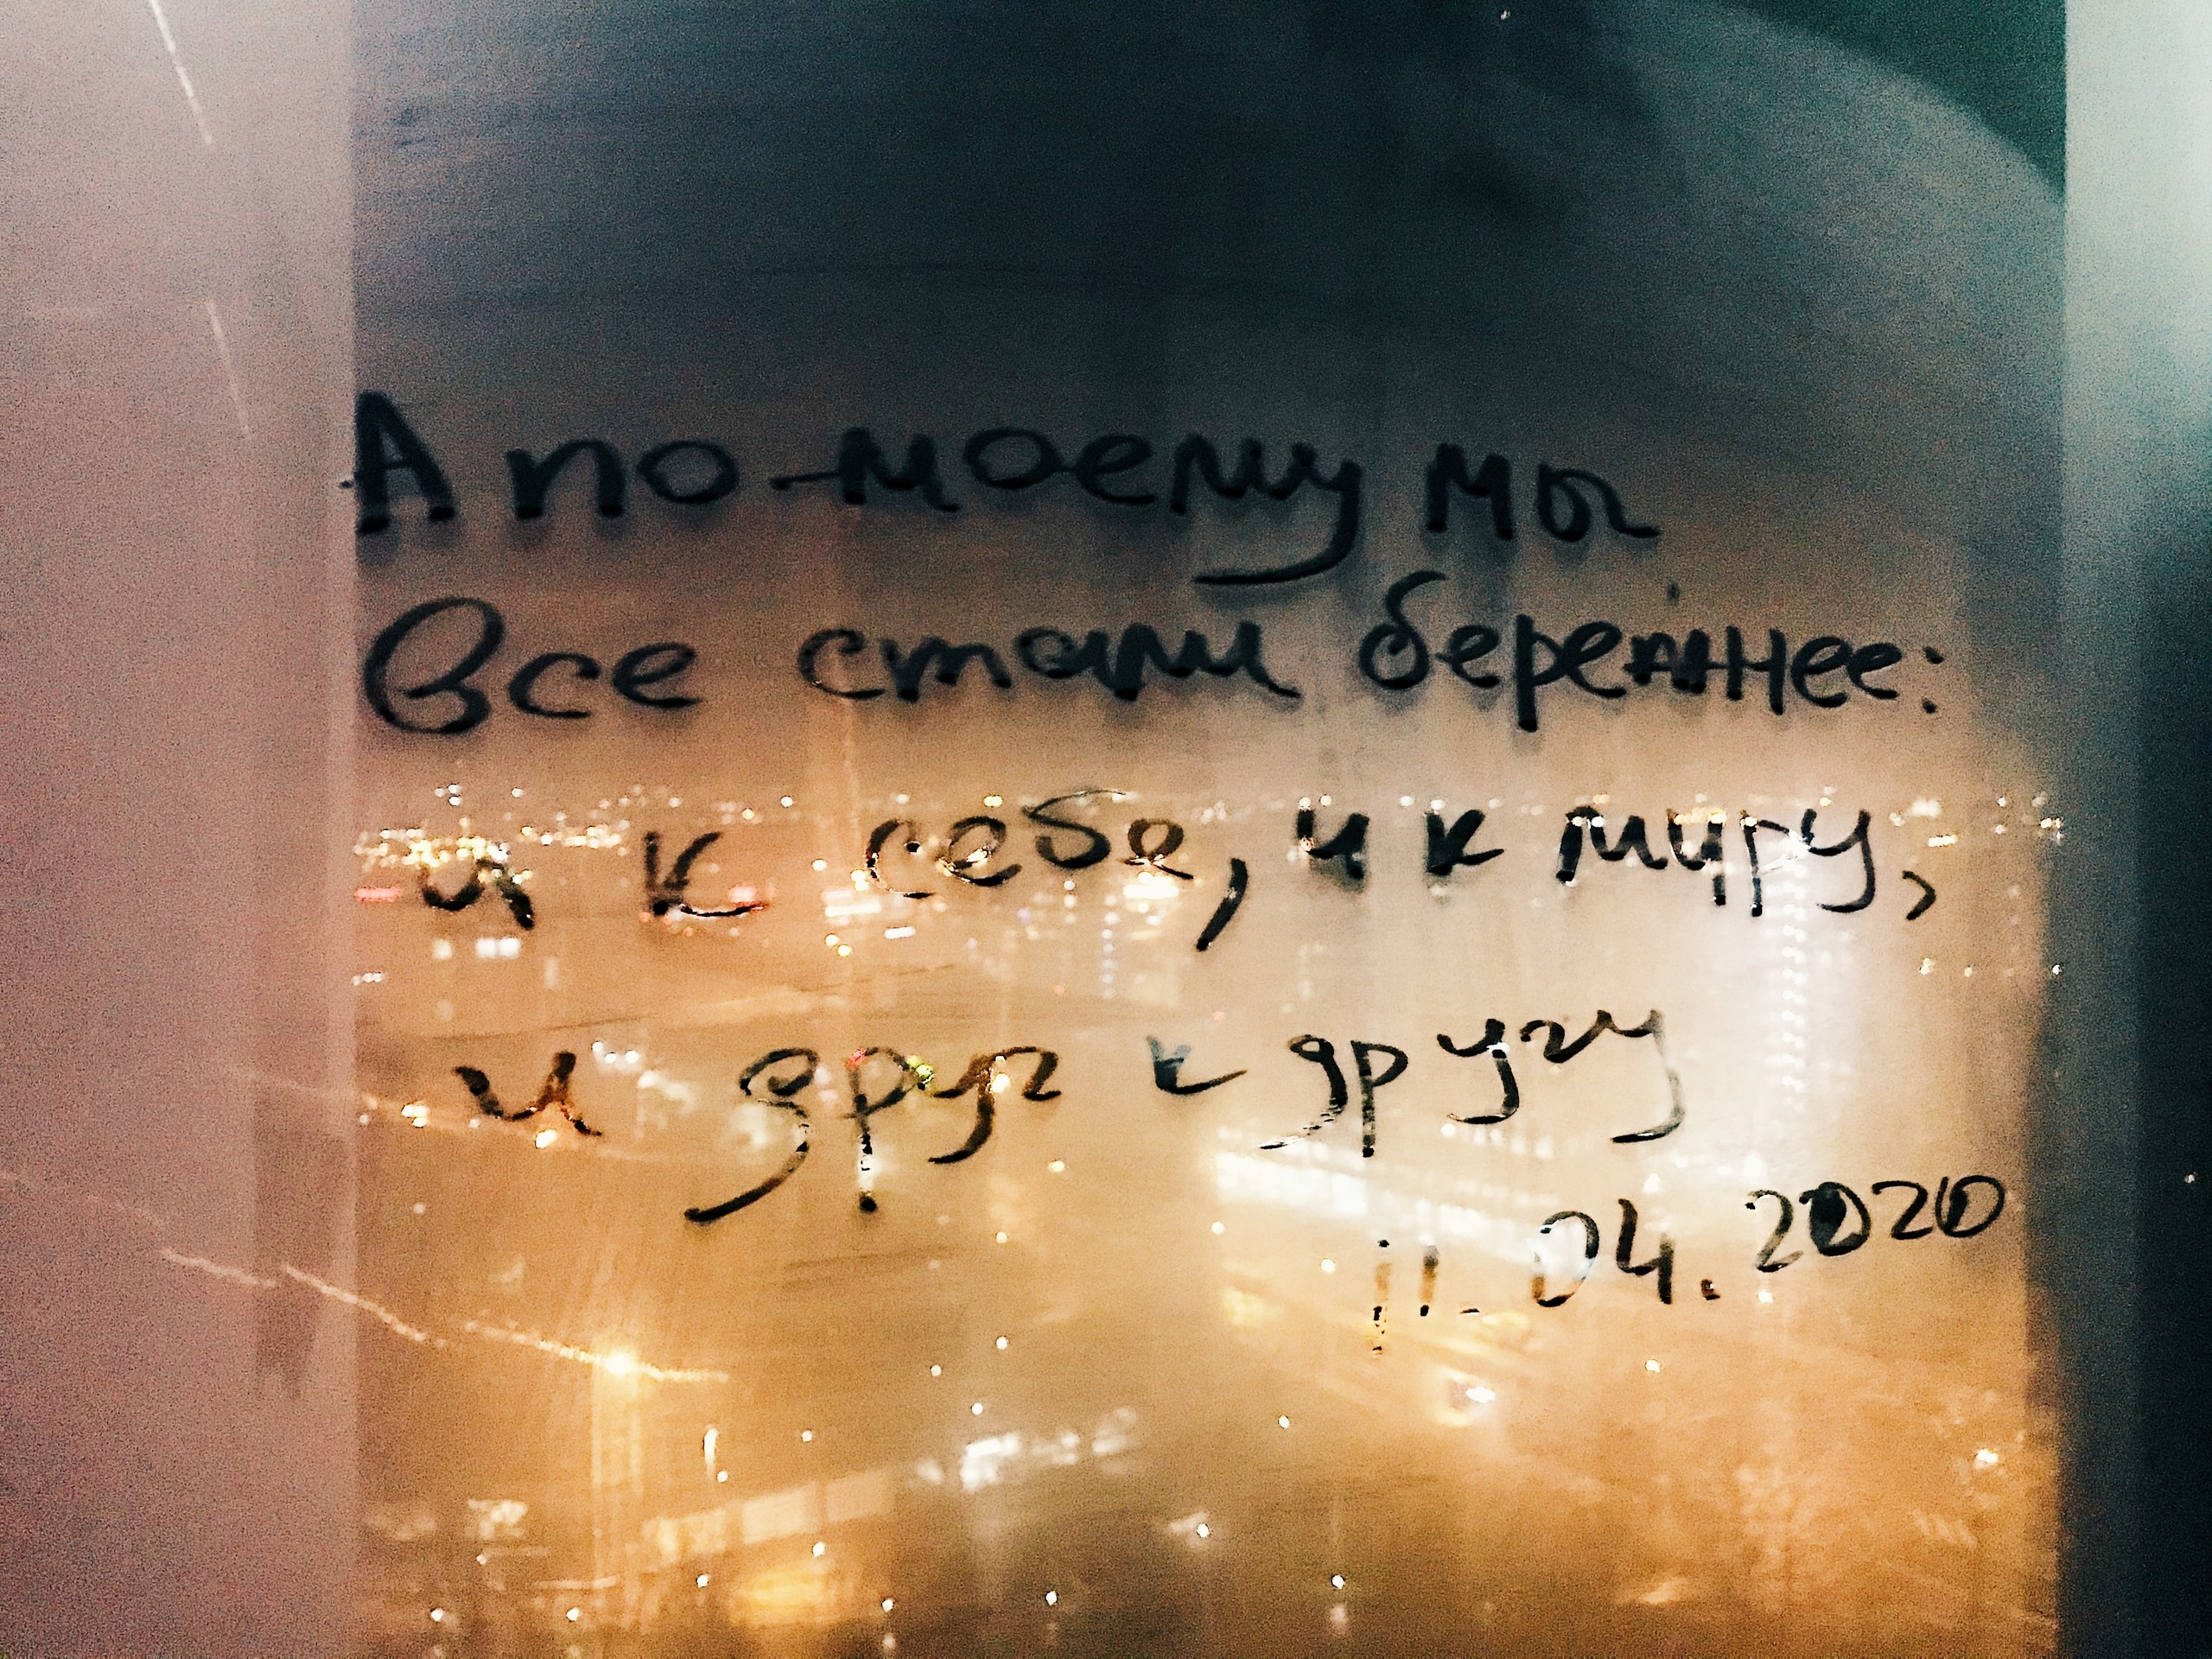 А по-моему мы
все стали бережнее:
и к себе, и к миру,
и друг к другу
11.04.2020